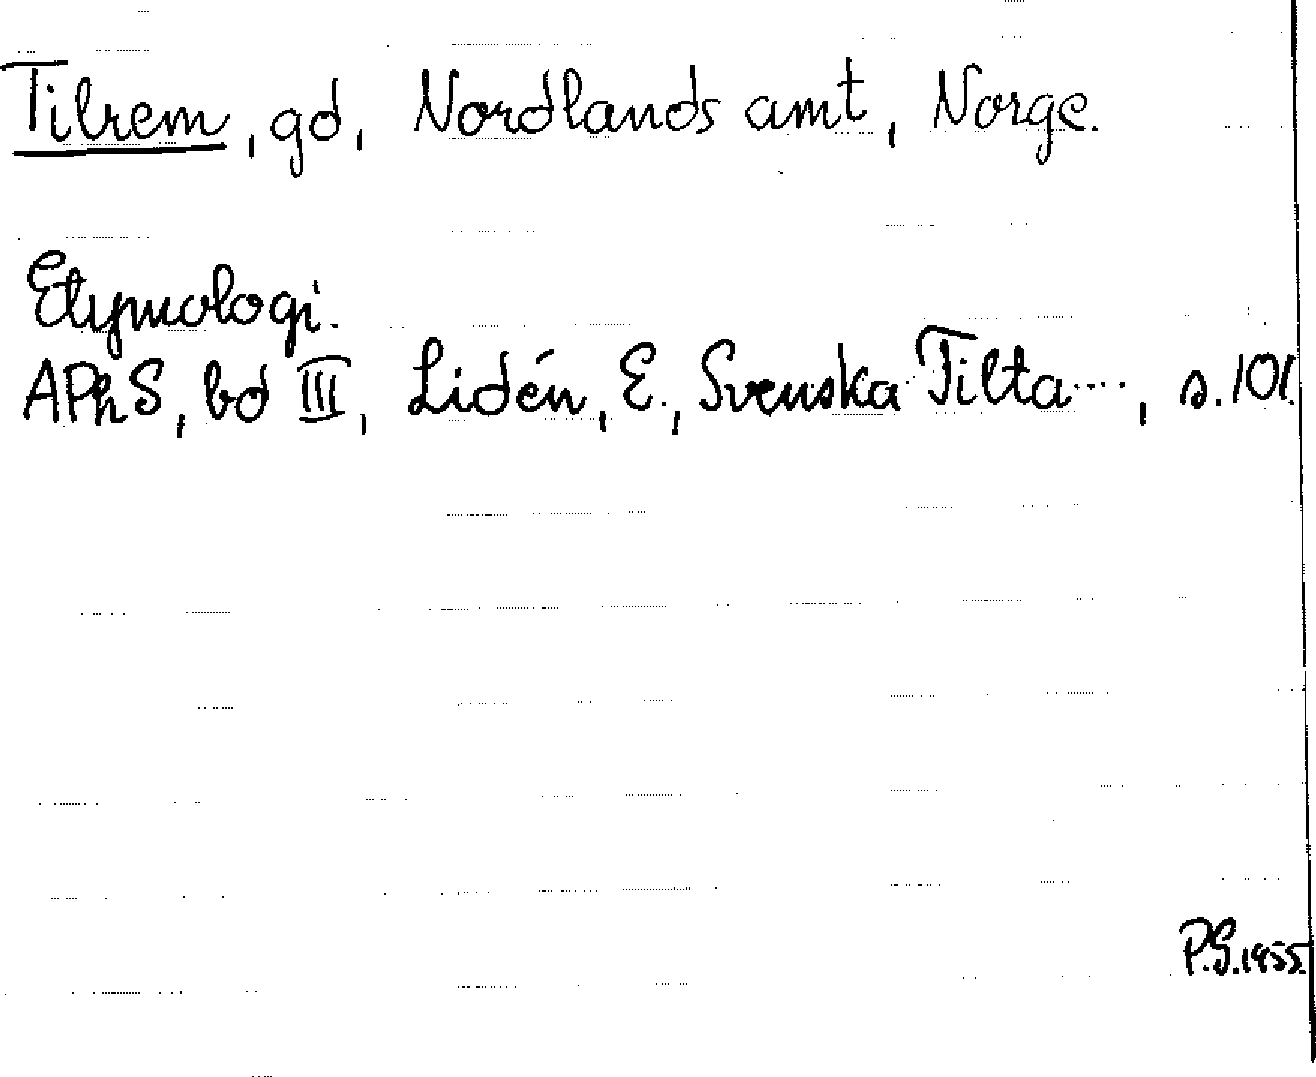 Tilrem, gd, Nordlands amt, Norge.
Etymologi.
APhS, bd III, Lidén, E., Svenska Tilta...., s. 101.
P.G. 1955.